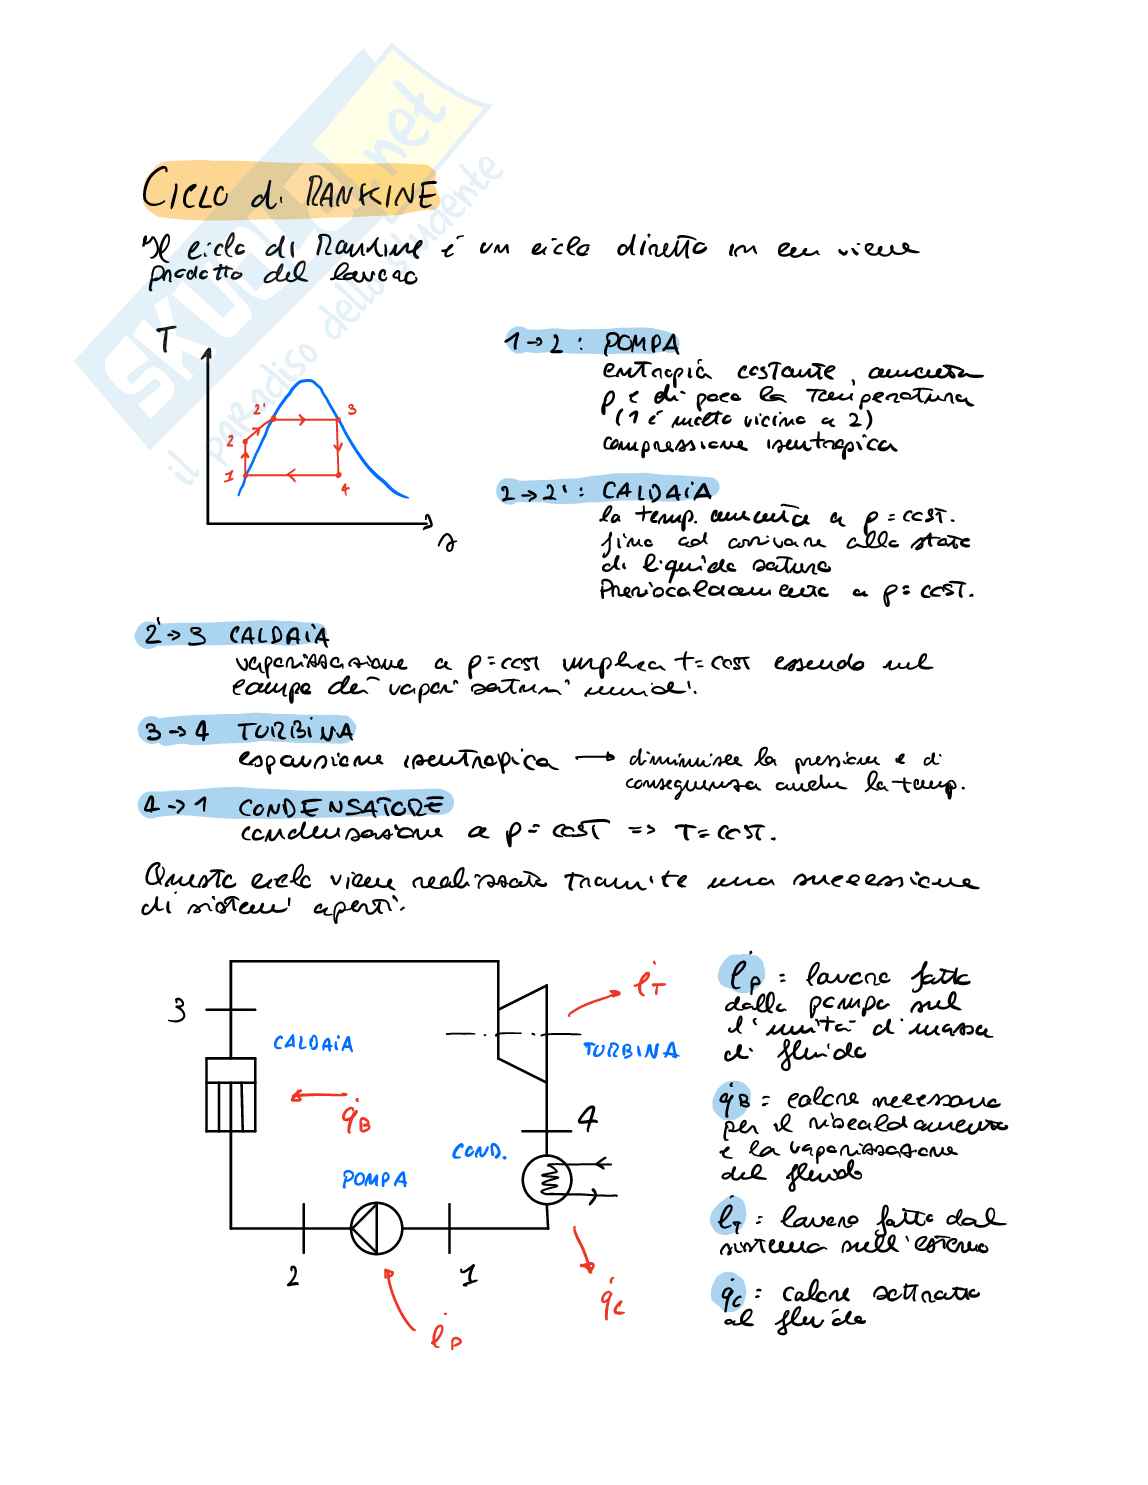 SKUOLA.net
il paradiso dello studente
CICLO di RANKINE
Il ciclo di Rankine è un ciclo diretto in cui viene
prodotto del lavoro
T
2'
3
2
1
4
s
1→2 : POMPA
entropia costante, aumenta
p e di poco la temperatura
(1 è molto vicino a 2)
compressione isentropica
2→2' : CALDAIA
la temp. aumenta a p=cost.
fino ad arrivare allo stato
di liquido saturo
Preriscaldamento a p=cost.
2'→3 CALDAIA
vaporizzazione a p=cost implica t=cost essendo nel
campo dei vapori saturi umidi.
3→4 TURBINA
espansione isentropica → diminuisce la pressione e di
conseguenza anche la temp.
4→1 CONDENSATORE
condensazione a p=cost => T=cost.
Questo ciclo viene realizzato tramite una successione
di sistemi aperti.
3
CALDAIA
q̇B
l̇T
TURBINA
4
COND.
POMPA
2
1
l̇P
q̇C
l̇P = lavoro fatto
dalla pompa sul
l'unità di massa
di fluido
q̇B = calore necessario
per il riscaldamento
e la vaporizzazione
del fluido
l̇T = lavoro fatto dal
sistema sull'esterno
q̇C = calore sottratto
al fluido